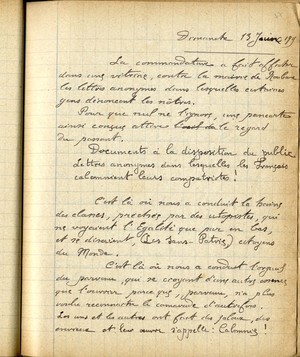 Dimanche 13 Janvier 191
La commandanture a fait afficher
dans une vitrine, contre la mairie de Roubaix
les lettres anonymes dans lesquelles certaines
gens dénoncent les nôtres.
Pour que nul ne l'ignore, une pancarte
ainsi conçue attire le regard
du passant.
Documents à la disposition du public
Lettres anonymes dans lesquelles les Français
calomnient leurs compatriotes !
C'est là où nous a conduit la haine
des classes, prêchée par des utopistes, qui
ne voyaient l'Egalité que par en bas,
et se disaient, (Les Sans-Patrie) citoyens
du Monde.
C'est là où nous a conduit l'orgueil
du parvenu, qui se croyant d'une autre
que l'ouvrier parce que, parvenu n'a plus
voulu reconnaître le camarade d'autrefois.
Les uns et les autres ont fait des jaloux, des
envieux et leur œuvre s'appelle : Calomniez !